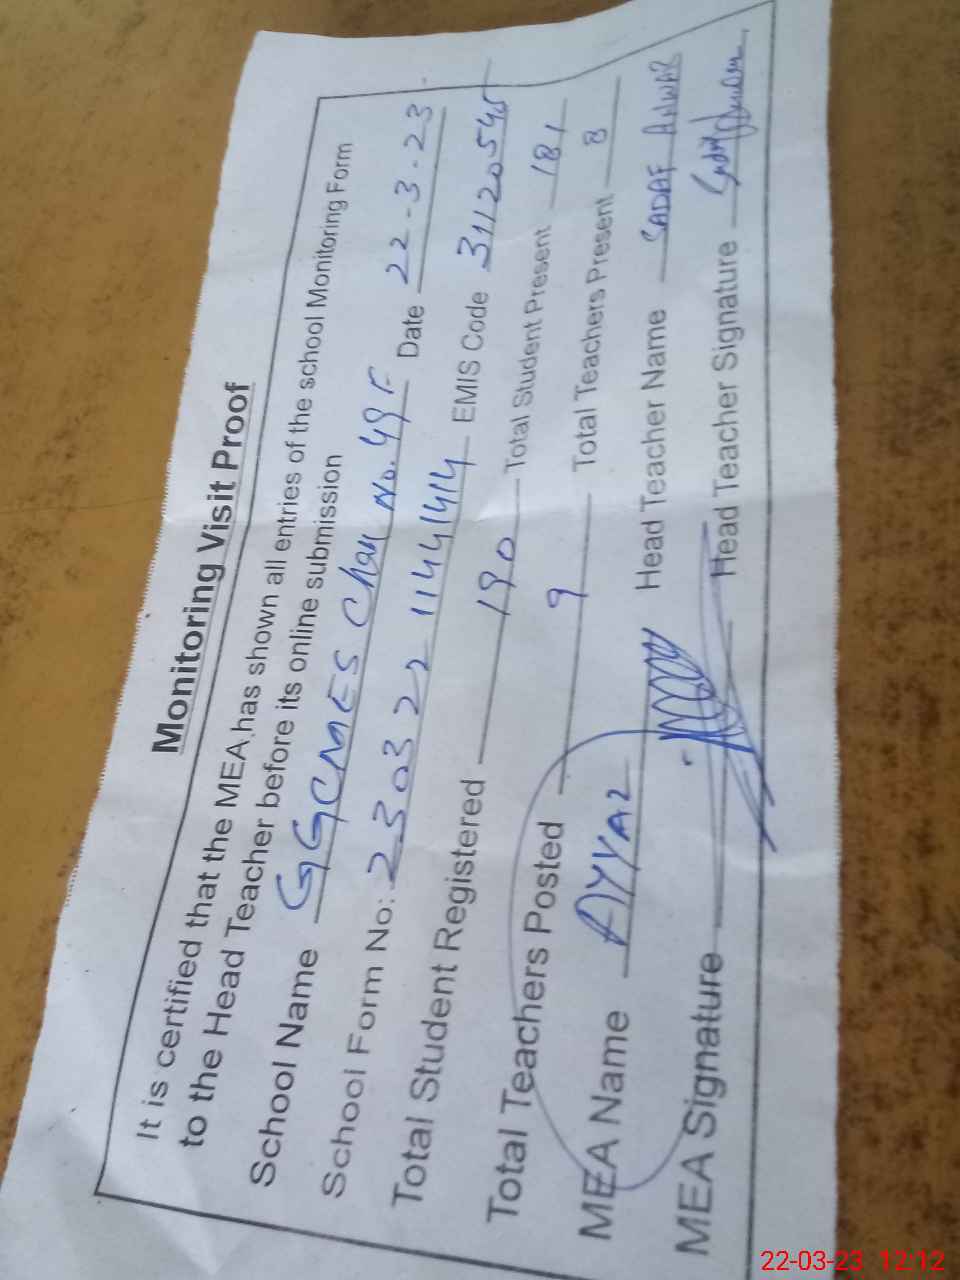 Monitoring Visit Proof
It is certified that the MEA has shown all entries of the school Monitoring Form
to the Head Teacher before its online submission
School Name GGCMES Chak No. 49 F Date 22-3-23
School Form No: 230322 11441414 EMIS Code 31120545
Total Student Registered 190 Total Student Present 181
Total Teachers Posted 9 Total Teachers Present 8
MEA Name AYYAZ Head Teacher Name SADAF ANWAR
MEA Signature Head Teacher Signature
22-03-23 12:12